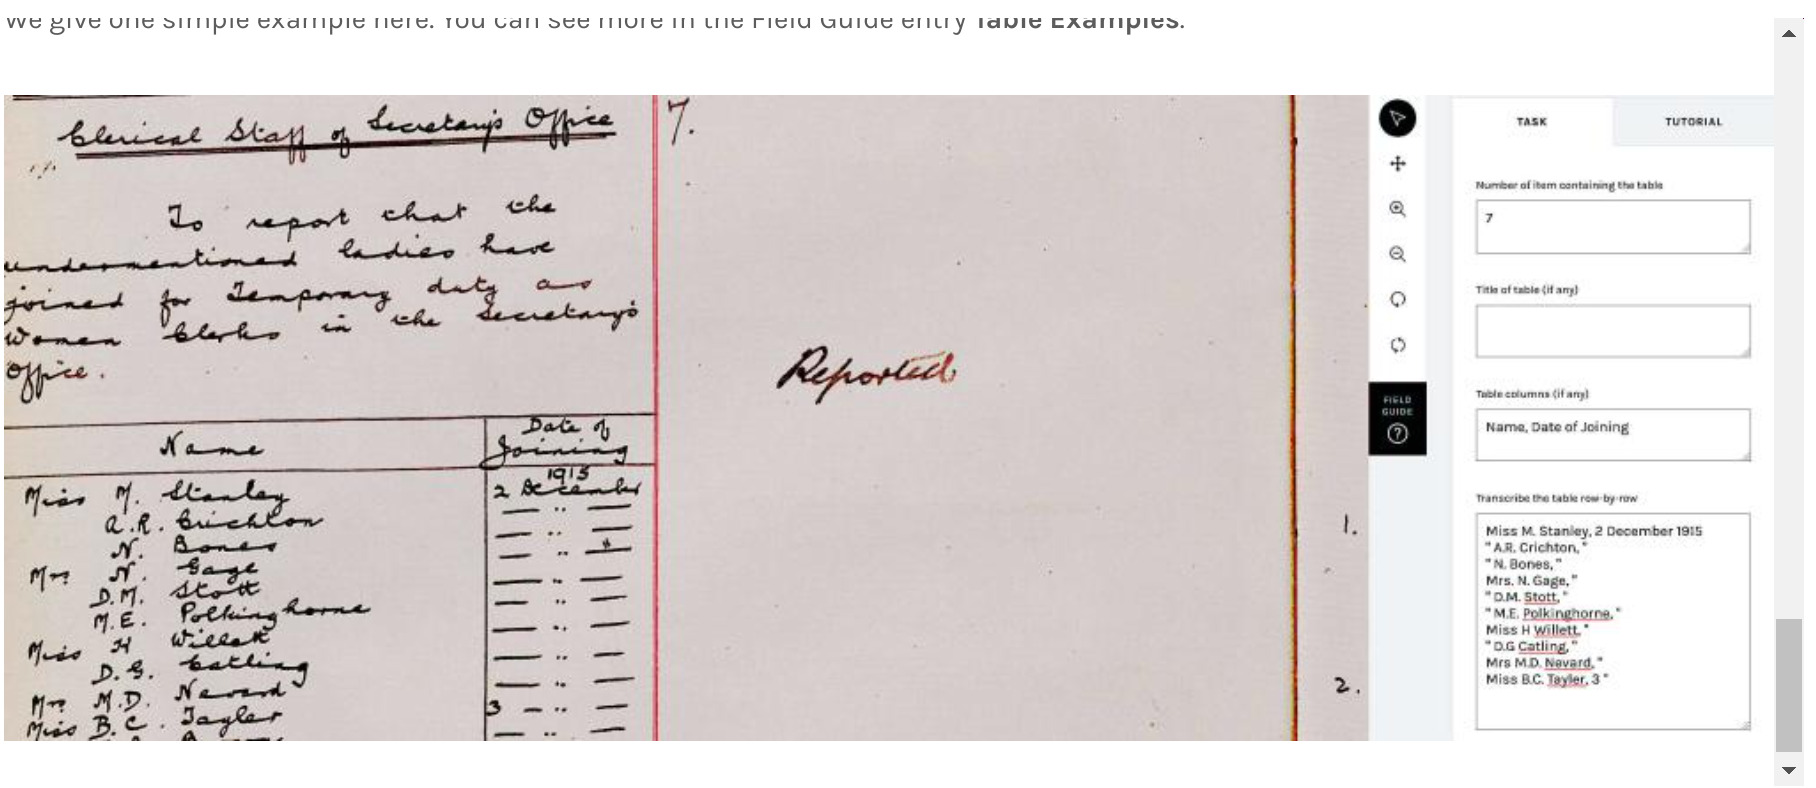 We give one simple example here. You can see more in the Field Guide entry Table Examples.
Clerical Staff of Secretary's Office
7.
To report that the
undermentioned ladies have
joined for Temporary duty as
Women Clerks in the Secretary's
Office.
Reported
Name
Date of
Joining
1915
Miss M. Stanley 2 December
A.R. Crichton — " —
N. Bones — " —
Mrs N. Gage — " —
D.M. Stott — " —
M.E. Polkinghorne — " —
Miss H Willett — " —
D.G. Catling — " —
Mrs M.D. Nevard — " —
Miss B.C. Tayler 3 — " —
1.
2.
FIELD
GUIDE
?
TASK
TUTORIAL
Number of item containing the table
7
Title of table (if any)
Table columns (if any)
Name, Date of Joining
Transcribe the table row-by-row
Miss M. Stanley, 2 December 1915
" A.R. Crichton, "
" N. Bones, "
Mrs. N. Gage, "
" D.M. Stott, "
" M.E. Polkinghorne, "
Miss H Willett, "
" D.G Catling, "
Mrs M.D. Nevard, "
Miss B.C. Tayler, 3 "